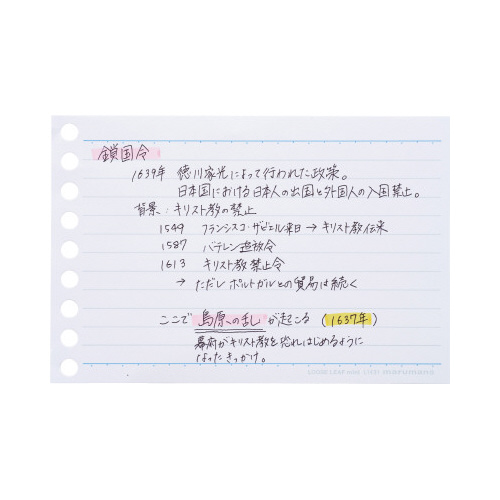 鎖国令
1639年 徳川家光によって行われた政策。
日本国における日本人の出国と外国人の入国禁止。
背景:キリスト教の禁止
1549 フランシスコ・ザビエル来日 → キリスト教伝来
1587 バテレン追放令
1613 キリスト教禁止令
→ ただし ポルトガルとの貿易は続く
ここで 島原の乱 が起こる (1637年)
幕府がキリスト教を恐れはじめるように
なったきっかけ。
LOOSE LEAF mini
maruman